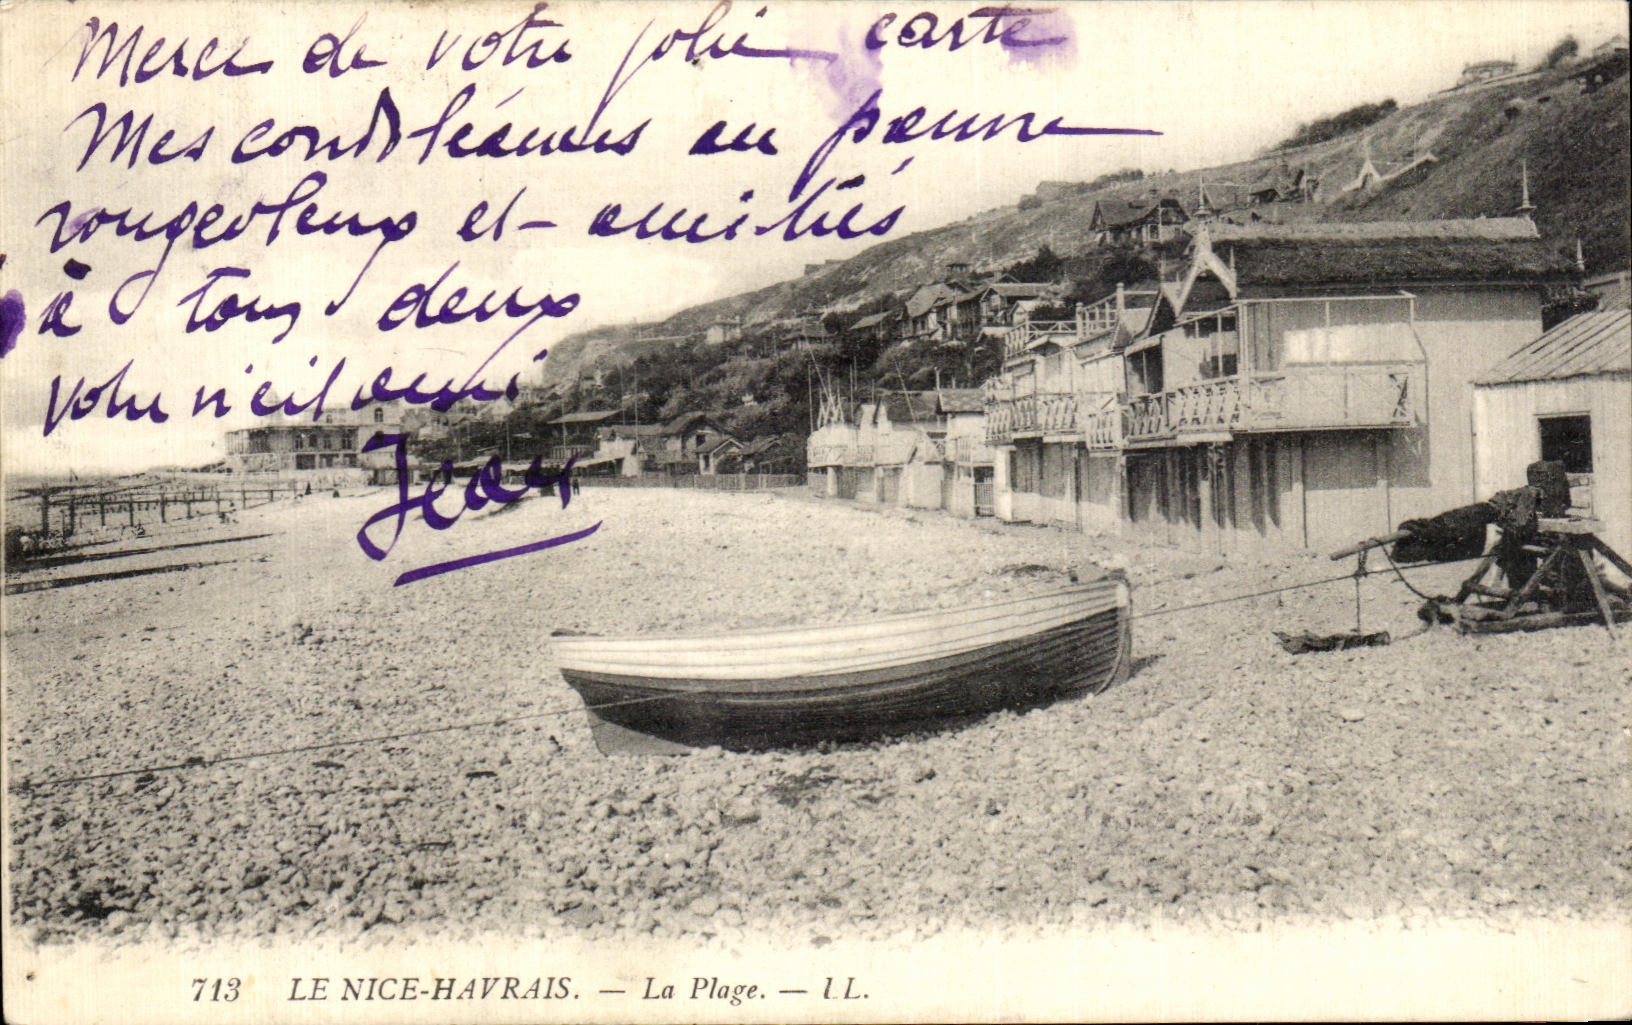 Merci de votre jolie carte
Mes condoléances au pauvre
rougeoleux et amitiés
à tous deux
Votre vieil ami
Jean
713 LE NICE-HAVRAIS. — La Plage. — LL.